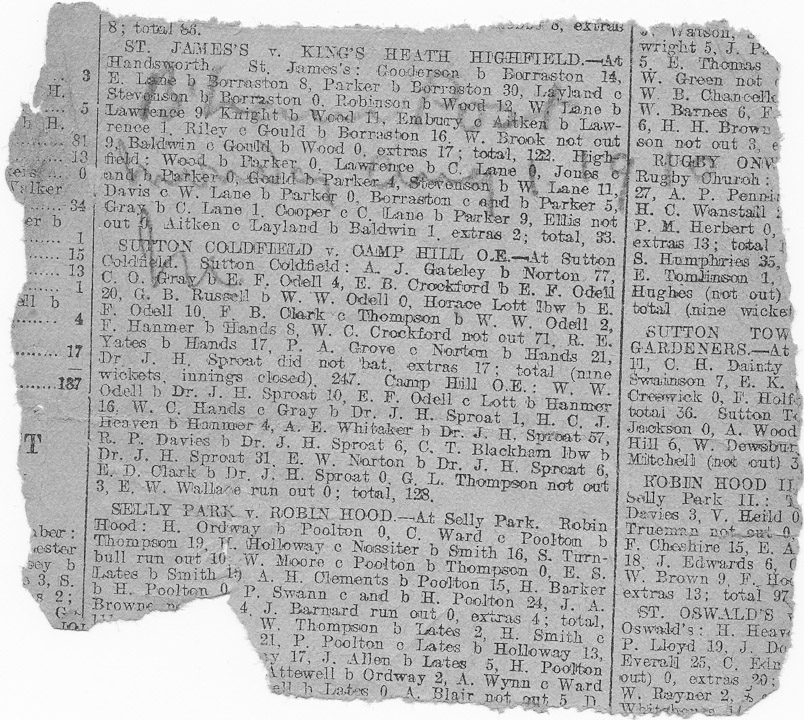 8; total 86.
ST. JAMES'S v. KING'S HEATH HIGHFIELD.—At
Handsworth. St. James's: Gooderson b Borraston 14,
E. Lane b Borraston 8, Parker b Borraston 30, Layland c
Stevenson b Borraston 0, Robinson b Wood 12, W. Lane b
Lawrence 9, Knight b Wood 11, Embury c Aitken b Law-
rence 1, Riley c Gould b Borraston 16, W. Brook not out
9, Baldwin c Gould b Wood 0, extras 17; total, 122. High-
field: Wood b Parker 0, Lawrence b C. Lane 0, Jones c
and b Parker 0, Gould b Parker 4, Stevenson b W. Lane 11,
Davis c W. Lane b Parker 0, Borraston c and b Parker 5,
Gray b C. Lane 1, Cooper c C. Lane b Parker 9, Ellis not
out Aitken c Layland b Baldwin 1, extras 2; total, 33.
SUTTON COLDFIELD v. CAMP HILL O.E.—At Sutton
Coldfield. Sutton Coldfield: A. J. Gateley b Norton 77,
C. O. Gray b E. F. Odell 4, E. B. Crockford b E. F. Odell
20, G. B. Russell b W. W. Odell 0, Horace Lott lbw b E.
F. Odell 10, F. B. Clark c Thompson b W. W. Odell 2,
F. Hanmer b Hands 8, W. C. Crockford not out 71, R. E.
Yates b Hands 17, P. A. Grove c Norton b Hands 21,
Dr. J. H. Sproat did not bat, extras 17; total (nine
wickets, innings closed), 247. Camp Hill O.E.: W. W.
Odell b Dr. J. H. Sproat 10, E. F. Odell c Lott b Hanmer
16, W. C. Hands c Gray b Dr. J. H. Sproat 1, H. C. J.
Heaven b Hanmer 4, A. E. Whitaker b Dr. J. H. Sproat 57,
R. P. Davies b Dr. J. H. Sproat 6, C. T. Blackham lbw b
Dr. J. H. Sproat 31, E. W. Norton b Dr. J. H. Sproat 6,
E. D. Clark b Dr. J. H. Sproat 0, G. L. Thompson not out
3, E. W. Wallace run out 0; total, 128.
SELLY PARK v. ROBIN HOOD.—At Selly Park. Robin
Hood: H. Ordway b Poolton 0, C. Ward c Poolton b
Thompson 19, H. Holloway c Nossiter b Smith 16, S. Turn-
bull run out 10, W. Moore c Poolton b Thompson 0, E. S.
Lates b Smith 19, A. H. Clements b Poolton 15, H. Barker
b H. Poolton 0, P. Swann c and b H. Poolton 24, J. A.
Browne 4, J. Barnard run out 0, extras 4; total,
W. Thompson b Lates 2, H. Smith c
21, P. Poolton c Lates b Holloway 13,
17, J. Allen b Lates 5, H. Poolton
Attewell b Ordway 2, A. Wynn c Ward
b Lates 0, A. Blair not out 5, D.
3
H.
5
b H.
81
13
0
34
er b
1
15
13
1
ell b
4
17
187
T
3, S.
s 2;
wright 5, J.
5, E. Thomas
W. Green not
W. B.
W. Barnes 6, F.
6, H. H. Brown
son not out 3, e
RUGBY
Rugby Church:
27, A. P.
H. C. Wanstall
P. M. Herbert 0,
extras 13; total
S. Humphries 35,
E. Tomlinson 1,
Hughes (not out)
total (nine
SUTTON TOW
GARDENERS.—At
11, C. H. Dainty
Swainson 7, E. K.
Creswick 0, F.
total 36. Sutton
Jackson 0, A. Wood
Hill 6, W.
Mitchell (not out) 3
ROBIN HOOD II
Selly Park II.:
Davies 3, V. Heild 0
Trueman not out 0
F. Cheshire 15, E. A
18, J. Edwards 6,
W. Brown 9, F.
extras 13; total 97
ST. OSWALD'S
Oswald's: H.
P. Lloyd 19, J.
Everall 25, C.
out) 0, extras 20;
W. Rayner 2,